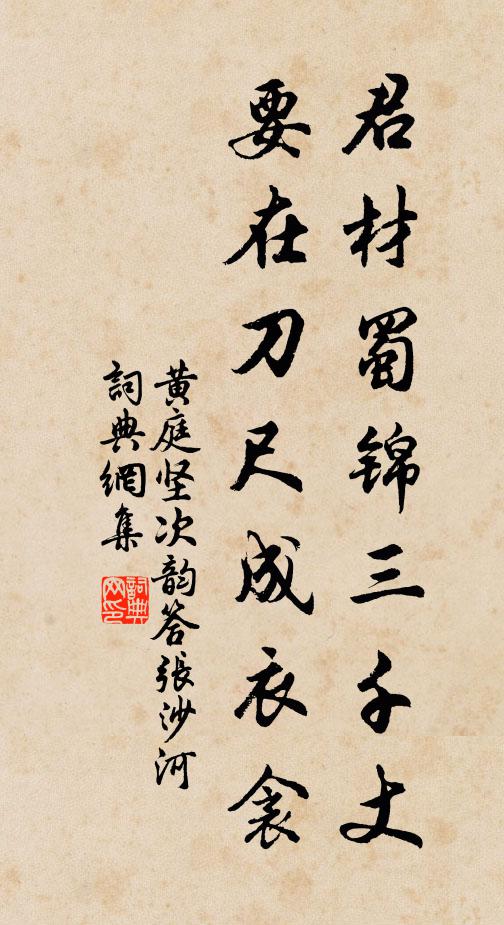 君材蜀錦三千丈
要在刀尺成衣衾
黃庭坚次韵答張沙河
詞典網集
詞典
网印